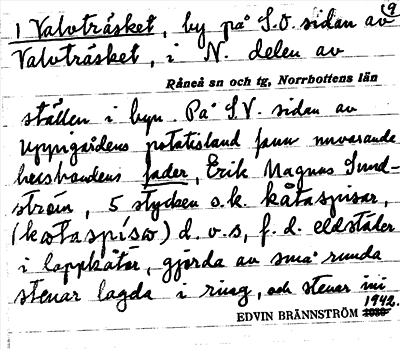 9
1 Valvträsket, by på S.O. sidan av
Valvträsket, i N. delen av
Råneå sn och tg, Norrbottens län
ställen i byn. På S.V. sidan av
Uppigårdens potatisland fann nuvarande
husbondens fader, Erik Magnus Sund-
ström, 5 stycken s.k. kåtaspisar,
(kåtaspísw) d.v.s, f.d. eldstäder
i lappkåtor, gjorda av små runda
stenar lagda i ring, och stenar ini
EDVIN BRÄNNSTRÖM 1942.